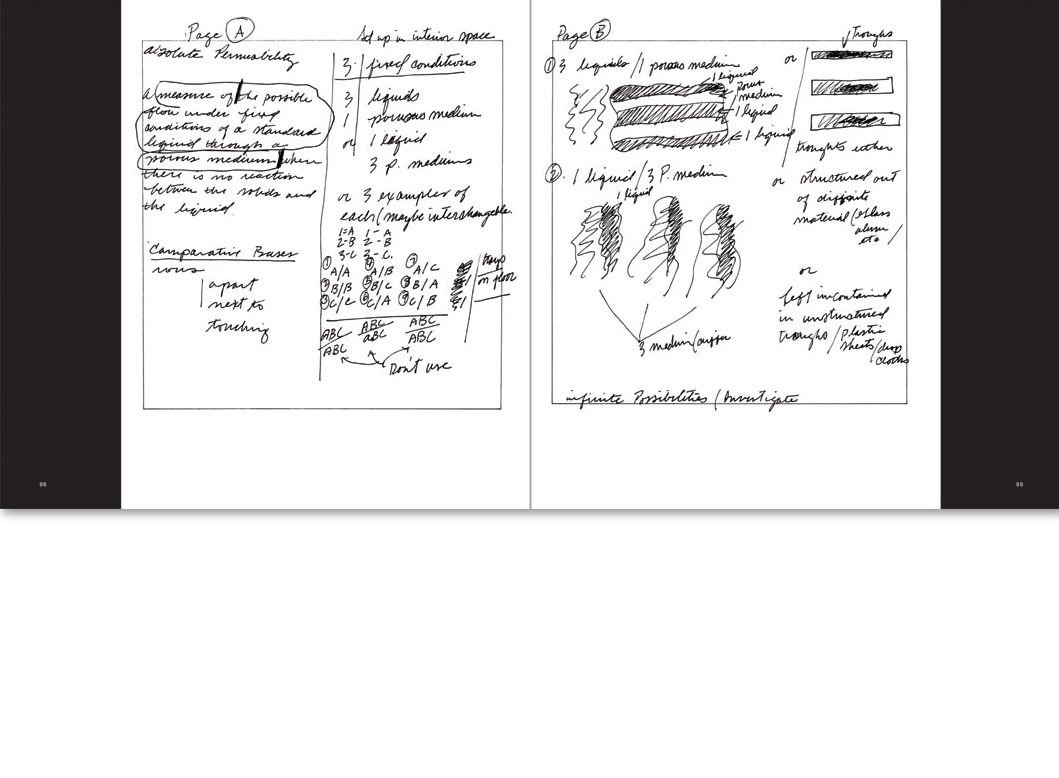 Page A
Absolute Permeability
a measure of the possible
flow under fixed
conditions of a standard
liquid through a
porous medium when
there is no reaction
between the solids and
the liquid.
Comparative Bases
rows
apart
next to
touching
Set up in interior space
3 fixed conditions
3 liquids
1 porous medium
or 1 liquid
3 p. mediums
or 3 examples of
each (maybe interchangeable
1=A 1-A
2-B 2-B
3-C 3-C.
① A/A ④ A/B ⑦ A/C
② B/B ⑤ B/C ⑧ B/A
③ C/C ⑥ C/A ⑨ C/B
trays
on floor
ABC ABC ABC
ABC ABC ABC
Don't use
88
Page B
troughs
① 3 liquids / 1 porous medium
or
1 liquid
medium
1 liquid
1 liquid
troughs either
② 1 liquid / 3 P. medium
1 liquid
or structured out
of different
material (glass
alum
etc /
or
left incontained
in unstructured
troughs / plastic
sheets / drop
cloths
3 medium
infinite Possibilities / Investigate
89